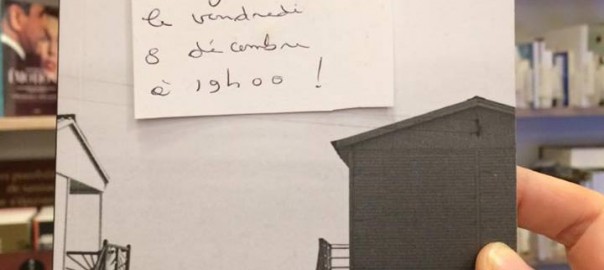 le vendredi
8 décembre
à 19h00 !